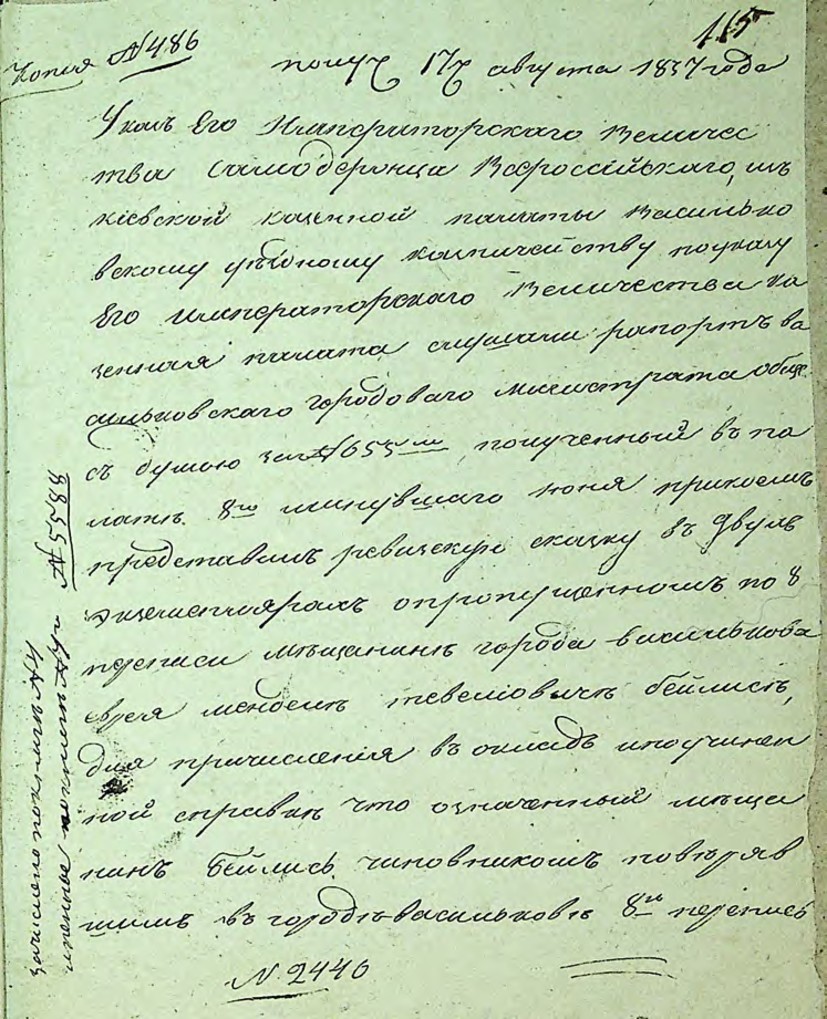 115
Копия №486
получ 17г августа 1837 года
Указъ Его Императорскаго Величес
тва Самодержца Всероссiйскаго, изъ
кiевской казенной палаты Василько
вскому уѣздному казначейству по указу
Его императорскаго Величества ка
зенная палата слушали рапортъ ва
сильковскаго городоваго магистрата обще
съ думою за №655мъ полученный въ па
латѣ 8го минувшаго июня при коемъ
представилъ ревизскую сказку въ двухъ
экземплярахъ о пропущенномъ по 8
переписи мѣщанинѣ города василькова
еврея менделѣ тевелiовичѣ бейлисѣ,
для причисления въ окладъ и по учинен
ной справкѣ что означенный мѣща
нинъ бейлисъ чиновникомъ повѣряв
шимъ въ городѣ васильковѣ 8ю перепись
N 2446
зачислено по книгѣ
именное №5588